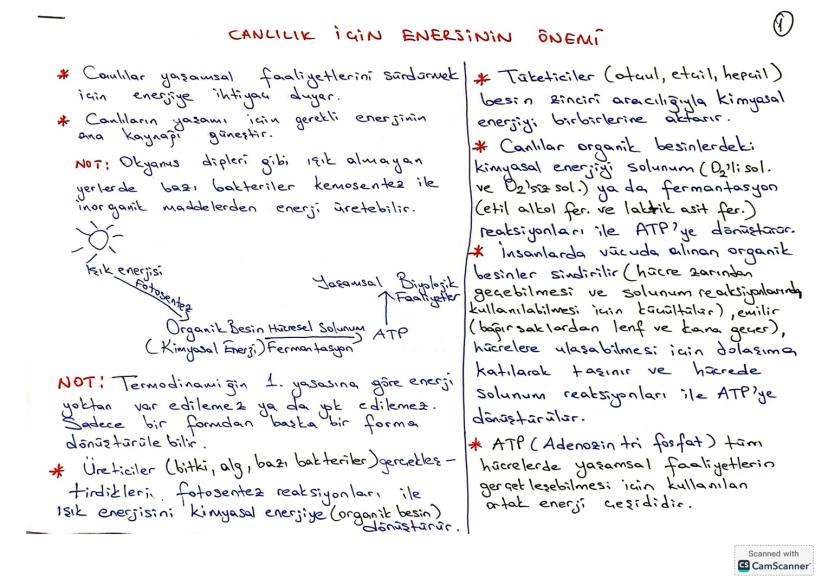 1
CANLILIK İÇİN ENERJİNİN ÖNEMİ
* Canlılar yaşamsal faaliyetlerini sürdürmek
için enerjiye ihtiyaç duyar.
* Canlıların yaşamı için gerekli enerjinin
ana kaynağı güneştir.
NOT: Okyanus dipleri gibi ışık almayan
yerlerde bazı bakteriler kemosentez ile
inorganik maddelerden enerji üretebilir.
Işık enerjisi
Fotosentez
Yaşamsal Biyolojik
Faaliyetler
Organik Besin Hücresel Solunum ATP
(Kimyasal Enerji) Fermantasyon
NOT: Termodinamiğin 1. yasasına göre enerji
yoktan var edilemez ya da yok edilemez.
Sadece bir formdan başka bir forma
dönüştürülebilir.
* Üreticiler (bitki, alg, bazı bakteriler) gerçekleş-
tirdikleri fotosentez reaksiyonları ile
ışık enerjisini kimyasal enerjiye (organik besin)
dönüştürür.
* Tüketiciler (otçul, etçil, hepçil)
besin zinciri aracılığıyla kimyasal
enerjiyi birbirlerine aktarır.
* Canlılar organik besinlerdeki
kimyasal enerjiyi solunum (O₂'li sol.
ve O₂'siz sol.) ya da fermantasyon
(etil alkol fer. ve laktik asit fer.)
reaksiyonları ile ATP'ye dönüştürür.
* İnsanlarda vücuda alınan organik
besinler sindirilir (hücre zarından
geçebilmesi ve solunum reaksiyonlarında
kullanılabilmesi için küçültülür), emilir
(bağırsaklardan lenf ve kana geçer),
hücrelere ulaşabilmesi için dolaşıma
katılarak taşınır ve hücrede
solunum reaksiyonları ile ATP'ye
dönüştürülür.
* ATP (Adenozin tri fosfat) tüm
hücrelerde yaşamsal faaliyetlerin
gerçekleşebilmesi için kullanılan
ortak enerji çeşididir.
Scanned with
CS CamScanner